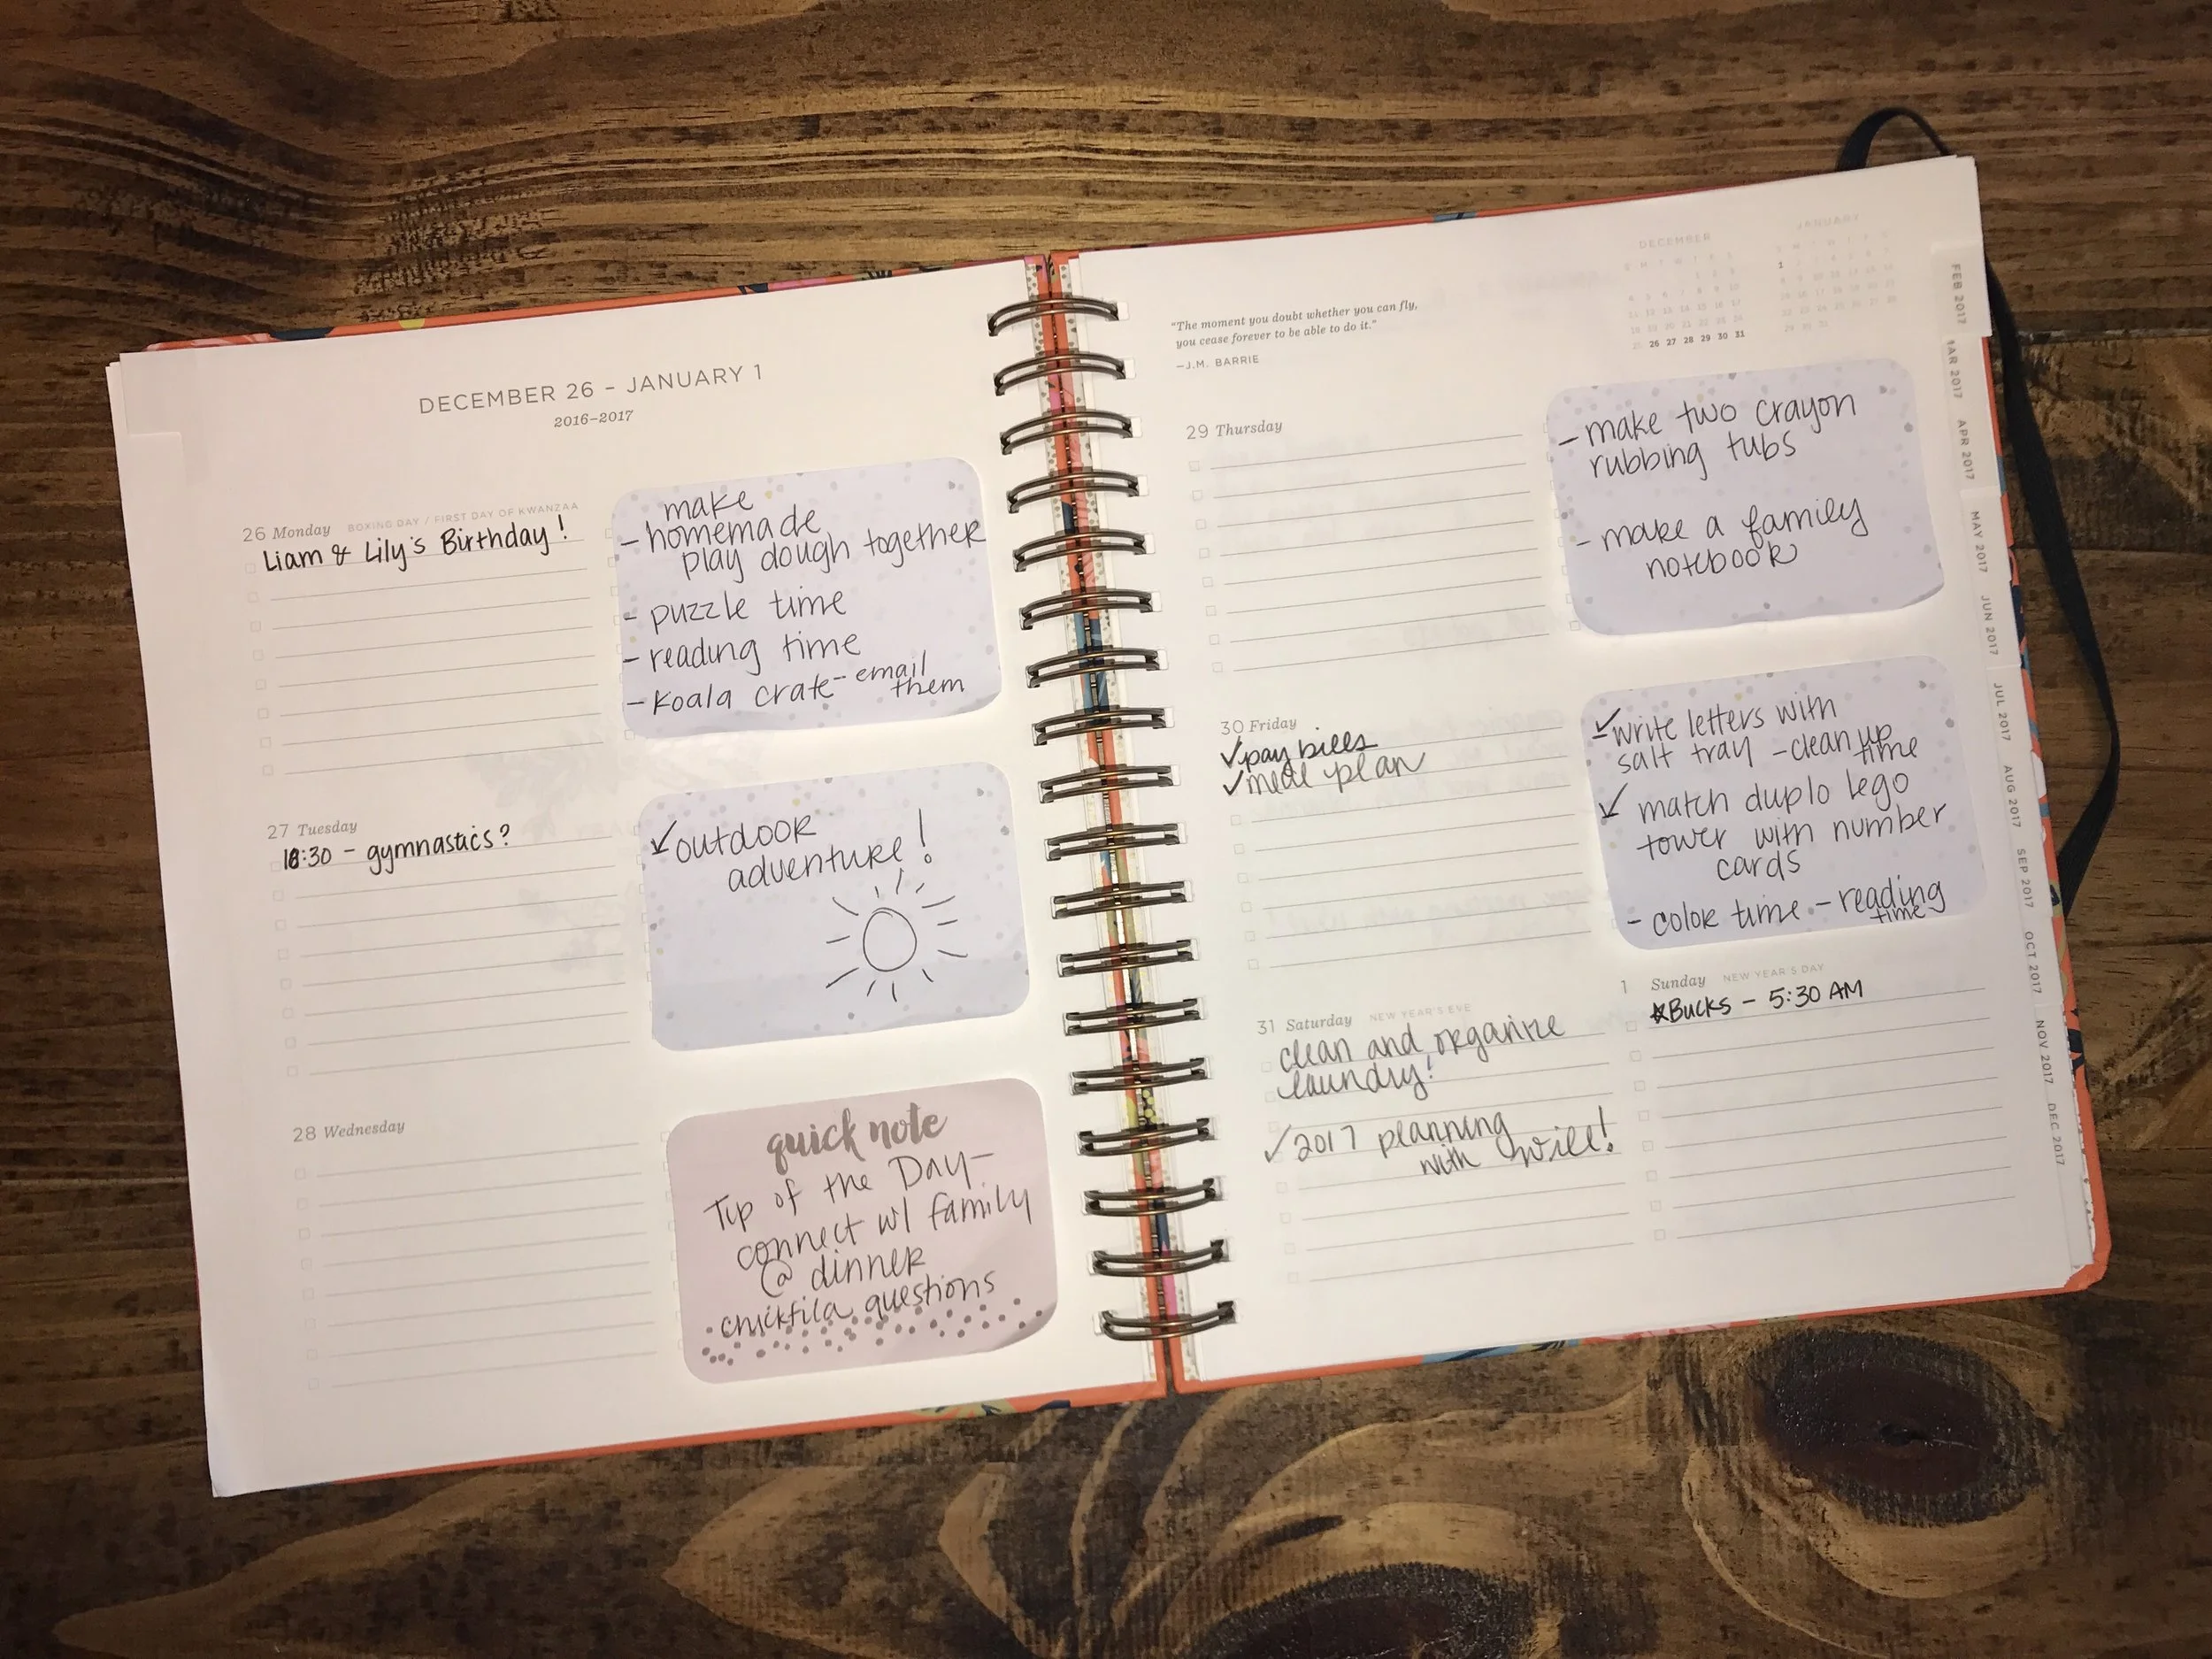 DECEMBER 26 – JANUARY 1
2016–2017
26 Monday BOXING DAY / FIRST DAY OF KWANZAA
Liam & Lily's Birthday!
make
- homemade
play dough together
- puzzle time
- reading time
- Koala crate - email
them
27 Tuesday
- gymnastics?
✓outdoor
adventure!
28 Wednesday
quick note
Tip of the Day-
connect w/ family
@ dinner
chickfila questions
"The moment you doubt whether you can fly,
you cease forever to be able to do it."
—J.M. BARRIE
DECEMBER
26 27 28 29 30 31
JANUARY
1
29 Thursday
- make two crayon
rubbing tubs
- make a family
notebook
30 Friday
✓pay bills
✓meal plan
✓write letters with
salt tray - clean up
time
✓ match duplo lego
tower with number
cards
- color time - reading
time
31 Saturday NEW YEAR'S EVE
clean and organize
laundry!
✓2017 planning
with Will!
1 Sunday NEW YEAR'S DAY
Bucks - 5:30 AM
FEB 2017
MAR 2017
APR 2017
MAY 2017
JUN 2017
JUL 2017
AUG 2017
SEP 2017
OCT 2017
NOV 2017
DEC 2017